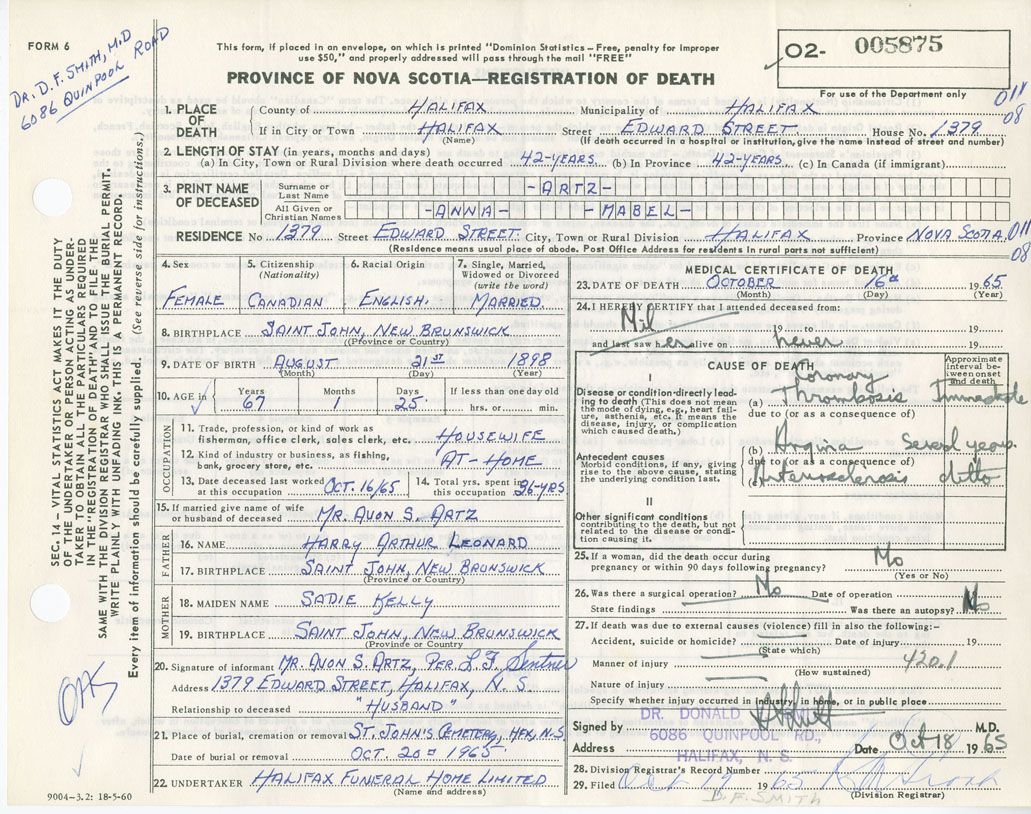 FORM 6
DR. D. F. SMITH, M.D
6086 QUINPOOL ROAD
This form, if placed in an envelope, on which is printed "Dominion Statistics – Free, penalty for improper
use $50," and properly addressed will pass through the mail "FREE"
PROVINCE OF NOVA SCOTIA—REGISTRATION OF DEATH
02- 005875
For use of the Department only
011
08
1. PLACE OF DEATH County of HALIFAX Municipality of HALIFAX
If in City or Town HALIFAX Street EDWARD STREET House No. 1379
(Name) (If death occurred in a hospital or institution, give the name instead of street and number)
2. LENGTH OF STAY (in years, months and days)
(a) In City, Town or Rural Division where death occurred 42-YEARS (b) In Province 42-YEARS (c) In Canada (if immigrant)
3. PRINT NAME OF DECEASED Surname or Last Name -ARTZ-
All Given or Christian Names -ANNA- -MABEL-
RESIDENCE No. 1379 Street EDWARD STREET. City, Town or Rural Division HALIFAX Province NOVA SCOTIA
(Residence means usual place of abode. Post Office Address for residents in rural parts not sufficient)
011
08
4. Sex FEMALE
5. Citizenship (Nationality) CANADIAN
6. Racial Origin ENGLISH.
7. Single, Married, Widowed or Divorced (write the word) MARRIED.
8. BIRTHPLACE SAINT JOHN, NEW BRUNSWICK
(Province or Country)
9. DATE OF BIRTH AUGUST 21ST 1898
(Month) (Day) (Year)
10. AGE in Years 67 Months 1 Days 25 If less than one day old hrs. or min.
OCCUPATION
11. Trade, profession, or kind of work as fisherman, office clerk, sales clerk, etc. HOUSEWIFE
12. Kind of industry or business, as fishing, bank, grocery store, etc. AT-HOME
13. Date deceased last worked at this occupation OCT. 16/65
14. Total yrs. spent in this occupation 36-YRS
15. If married give name of wife or husband of deceased MR. AVON S. ARTZ
FATHER
16. NAME HARRY ARTHUR LEONARD
17. BIRTHPLACE SAINT JOHN, NEW BRUNSWICK
(Province or Country)
MOTHER
18. MAIDEN NAME SADIE KELLY
19. BIRTHPLACE SAINT JOHN, NEW BRUNSWICK
(Province or Country)
20. Signature of informant MR. AVON S. ARTZ, PER L.F. Sentner
Address 1379 EDWARD STREET, HALIFAX, N.S.
Relationship to deceased "HUSBAND"
21. Place of burial, cremation or removal ST. JOHN'S CEMETERY, HFX, N.S.
Date of burial or removal OCT. 20TH 1965
22. UNDERTAKER HALIFAX FUNERAL HOME LIMITED
(Name and address)
MEDICAL CERTIFICATE OF DEATH
23. DATE OF DEATH OCTOBER 16TH 1965
(Month) (Day) (Year)
24. I HEREBY CERTIFY that I attended deceased from:
Nil 19 to 19
and last saw her alive on never 19
CAUSE OF DEATH
Approximate interval between onset and death
I
Disease or condition directly leading to death (This does not mean the mode of dying, e.g., heart failure, asthenia, etc. It means the disease, injury, or complication which caused death.)
(a) Coronary Thrombosis Immediate
due to (or as a consequence of)
Antecedent causes
Morbid conditions, if any, giving rise to the above cause, stating the underlying condition last.
(b) Angina Several years.
due to (or as a consequence of)
(c) Arteriosclerosis ditto
II
Other significant conditions
contributing to the death, but not related to the disease or condition causing it.
25. If a woman, did the death occur during pregnancy or within 90 days following pregnancy? No
(Yes or No)
26. Was there a surgical operation? No Date of operation
State findings Was there an autopsy? No
27. If death was due to external causes (violence) fill in also the following:–
Accident, suicide or homicide? Date of injury 19
(State which)
Manner of injury 420.1
(How sustained)
Nature of injury
Specify whether injury occurred in industry, in home, or in public place
Signed by DR. DONALD M.D.
Address 6086 QUINPOOL RD., HALIFAX, N. S. Date Oct 18 1965
28. Division Registrar's Record Number
29. Filed Oct 19 1965
(Division Registrar)
D.F. SMITH
SEC. 14 – VITAL STATISTICS ACT MAKES IT THE DUTY
OF THE UNDERTAKER OR PERSON ACTING AS UNDER-
TAKER TO OBTAIN ALL THE PARTICULARS REQUIRED
IN THE "REGISTRATION OF DEATH" AND TO FILE THE
SAME WITH THE DIVISION REGISTRAR WHO SHALL ISSUE THE BURIAL PERMIT.
WRITE PLAINLY WITH UNFADING INK. THIS IS A PERMANENT RECORD.
Every item of information should be carefully supplied. (See reverse side for instructions.)
9004-3.2: 18-5-60